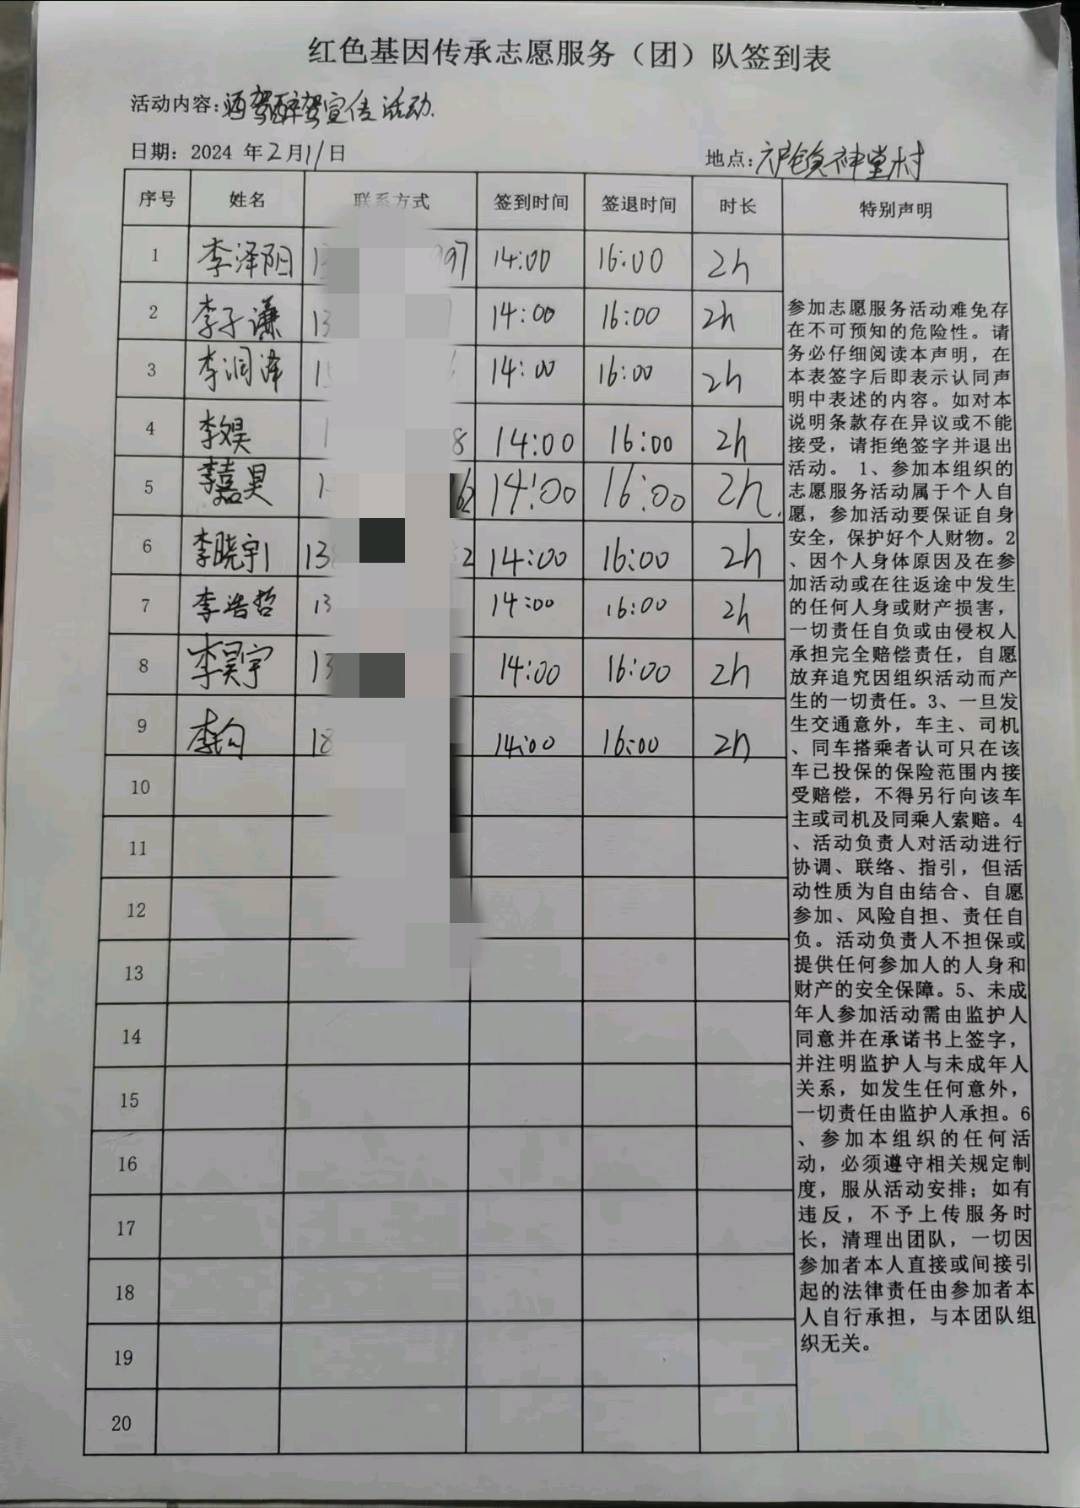 红色基因传承志愿服务（团）队签到表
活动内容:酒驾醉驾宣传活动.
日期: 2024 年2月11日 地点:户仓镇神堂村
序号 姓名 联系方式 签到时间 签退时间 时长 特别声明
1 李泽阳 13 397 14:00 16:00 2h
2 李子谦 13 14:00 16:00 2h
3 李润泽 15 14:00 16:00 2h
4 李昊 1 8 14:00 16:00 2h
5 李嘉昊 1 62 14:00 16:00 2h.
6 李晓宇 138 2 14:00 16:00 2h
7 李浩哲 13 14:00 16:00 2h
8 李昊宇 13 14:00 16:00 2h
9 李 18 14:00 16:00 2h
10
11
12
13
14
15
16
17
18
19
20
参加志愿服务活动难免存
在不可预知的危险性。请
务必仔细阅读本声明，在
本表签字后即表示认同声
明中表述的内容。如对本
说明条款存在异议或不能
接受，请拒绝签字并退出
活动。1、参加本组织的
志愿服务活动属于个人自
愿，参加活动要保证自身
安全，保护好个人财物。2
、因个人身体原因及在参
加活动或在往返途中发生
的任何人身或财产损害，
一切责任自负或由侵权人
承担完全赔偿责任，自愿
放弃追究因组织活动而产
生的一切责任。3、一旦发
生交通意外，车主、司机
、同车搭乘者认可只在该
车已投保的保险范围内接
受赔偿，不得另行向该车
主或司机及同乘人索赔。4
、活动负责人对活动进行
协调、联络、指引，但活
动性质为自由结合、自愿
参加、风险自担、责任自
负。活动负责人不担保或
提供任何参加人的人身和
财产的安全保障。5、未成
年人参加活动需由监护人
同意并在承诺书上签字，
并注明监护人与未成年人
关系，如发生任何意外，
一切责任由监护人承担。6
、参加本组织的任何活
动，必须遵守相关规定制
度，服从活动安排；如有
违反，不予上传服务时
长，清理出团队，一切因
参加者本人直接或间接引
起的法律责任由参加者本
人自行承担，与本团队组
织无关。